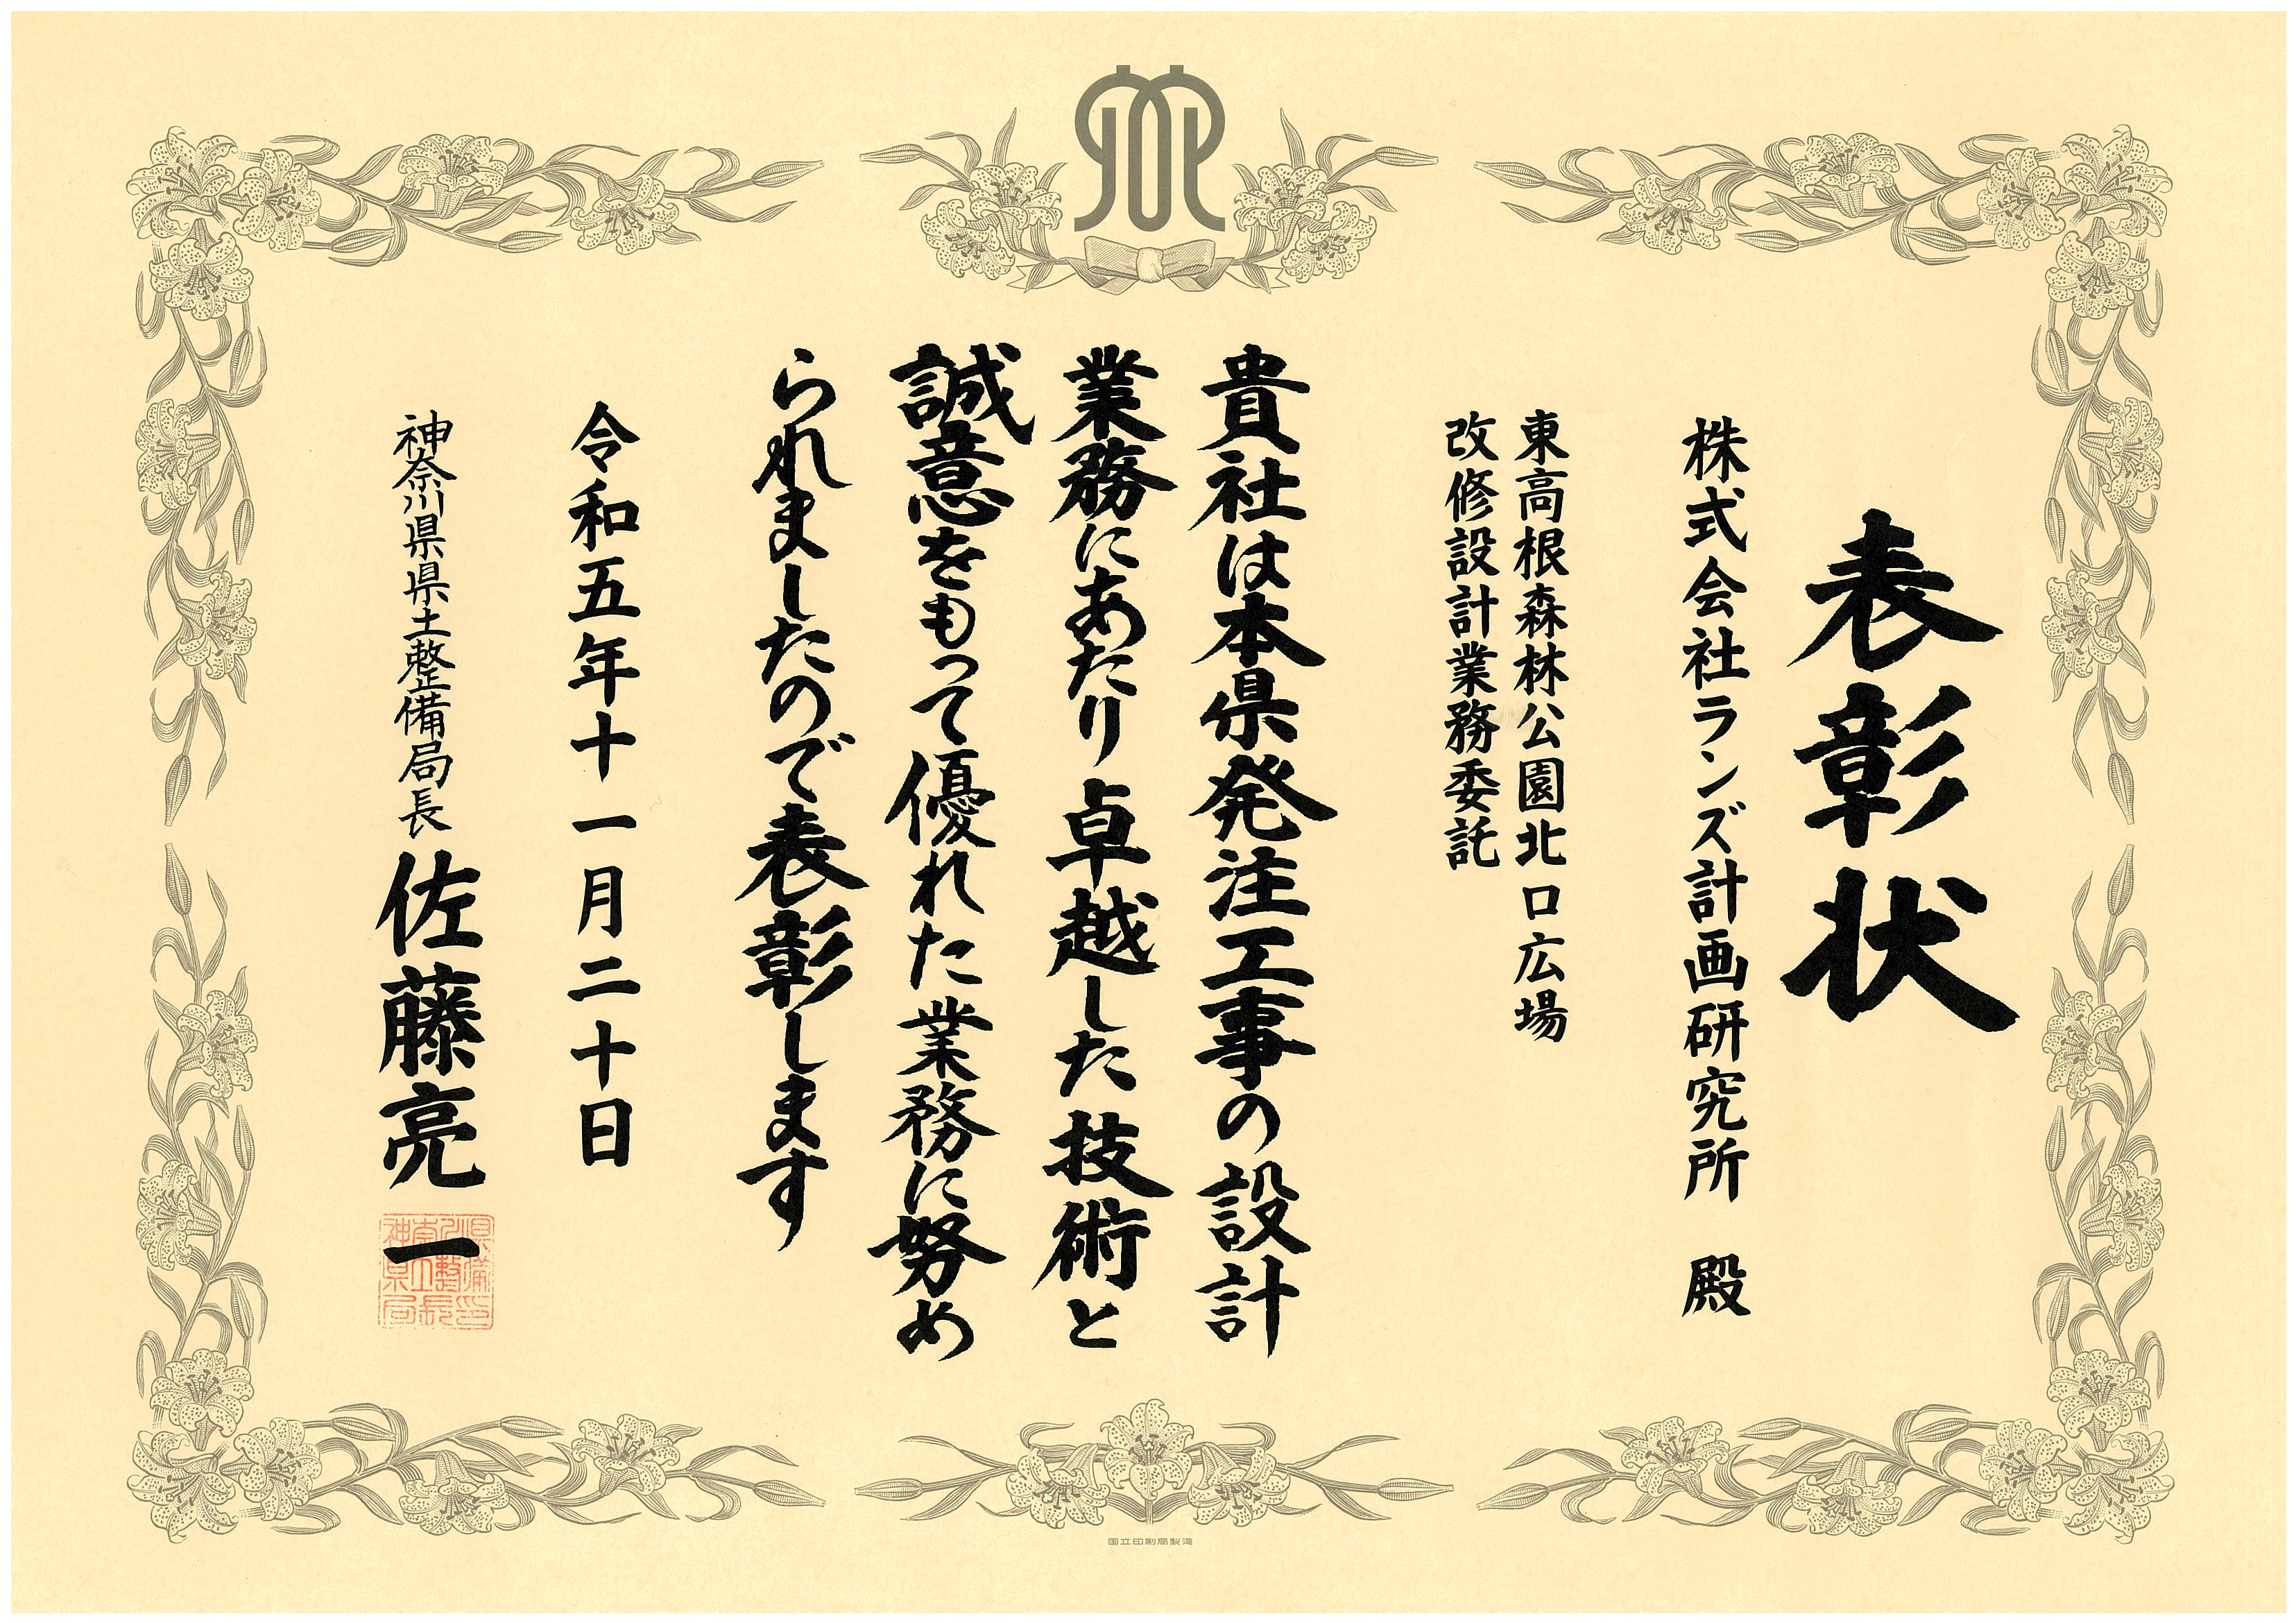 表彰状
株式会社ランズ計画研究所 殿
東高根森林公園北口広場
改修設計業務委託
貴社は本県発注工事の設計
業務にあたり卓越した技術と
誠意をもって優れた業務に努め
られましたので表彰します
令和五年十一月二十日
神奈川県県土整備局長 佐藤亮一
神奈川県
県土整備
局長印
国立印刷局製造